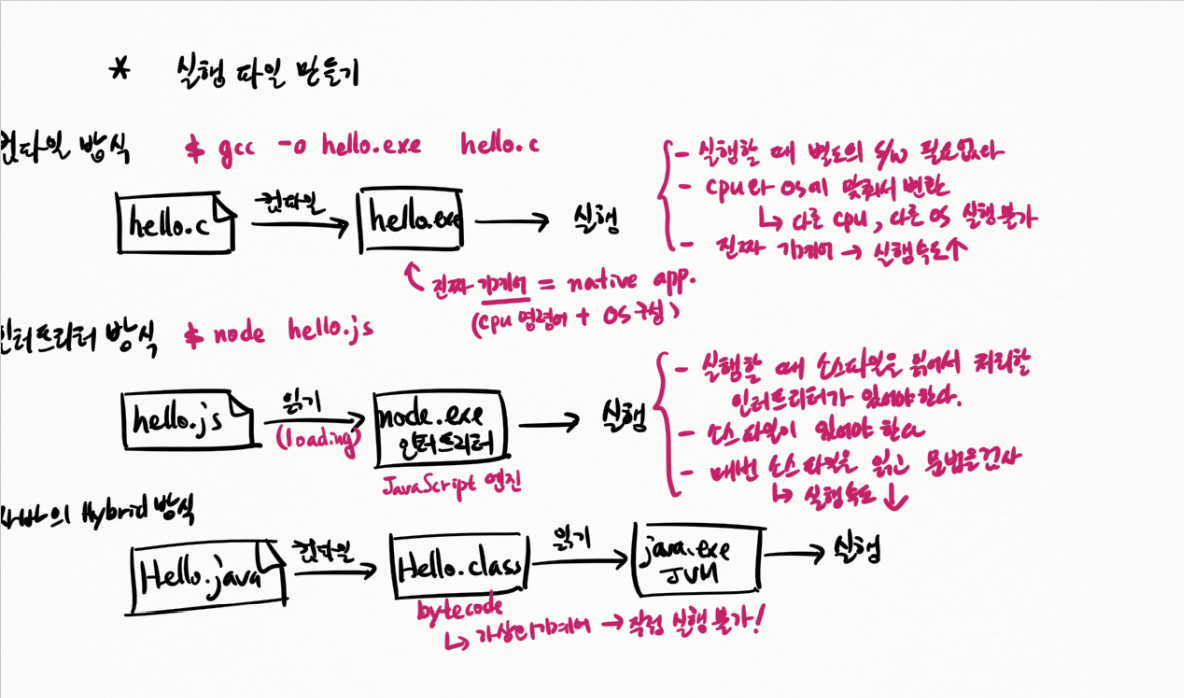 * 실행 파일 만들기
컴파일 방식 $ gcc -o hello.exe hello.c
hello.c 컴파일 → hello.exe → 실행
- 실행할 때 별도의 S/W 필요없다
- cpu와 OS에 맞춰서 변환
↳ 다른 cpu, 다른 OS 실행불가
- 진짜 기계어 → 실행속도↑
진짜 기계어 = native app.
(cpu 명령어 + OS 구성)
인터프리터 방식 $ node hello.js
hello.js 읽기 → node.exe → 실행
(loading) 인터프리터
JavaScript 엔진
- 실행할 때 소스파일을 읽어서 처리할
인터프리터가 있어야한다.
- 소스파일이 있어야 한다
- 매번 소스파일을 읽고 문법을검사
↳ 실행속도 ↓
자바의 Hybrid 방식
Hello.java 컴파일 → Hello.class 읽기 → java.exe → 실행
JVM
bytecode
↳ 가상의기계어 → 직접 실행 불가!